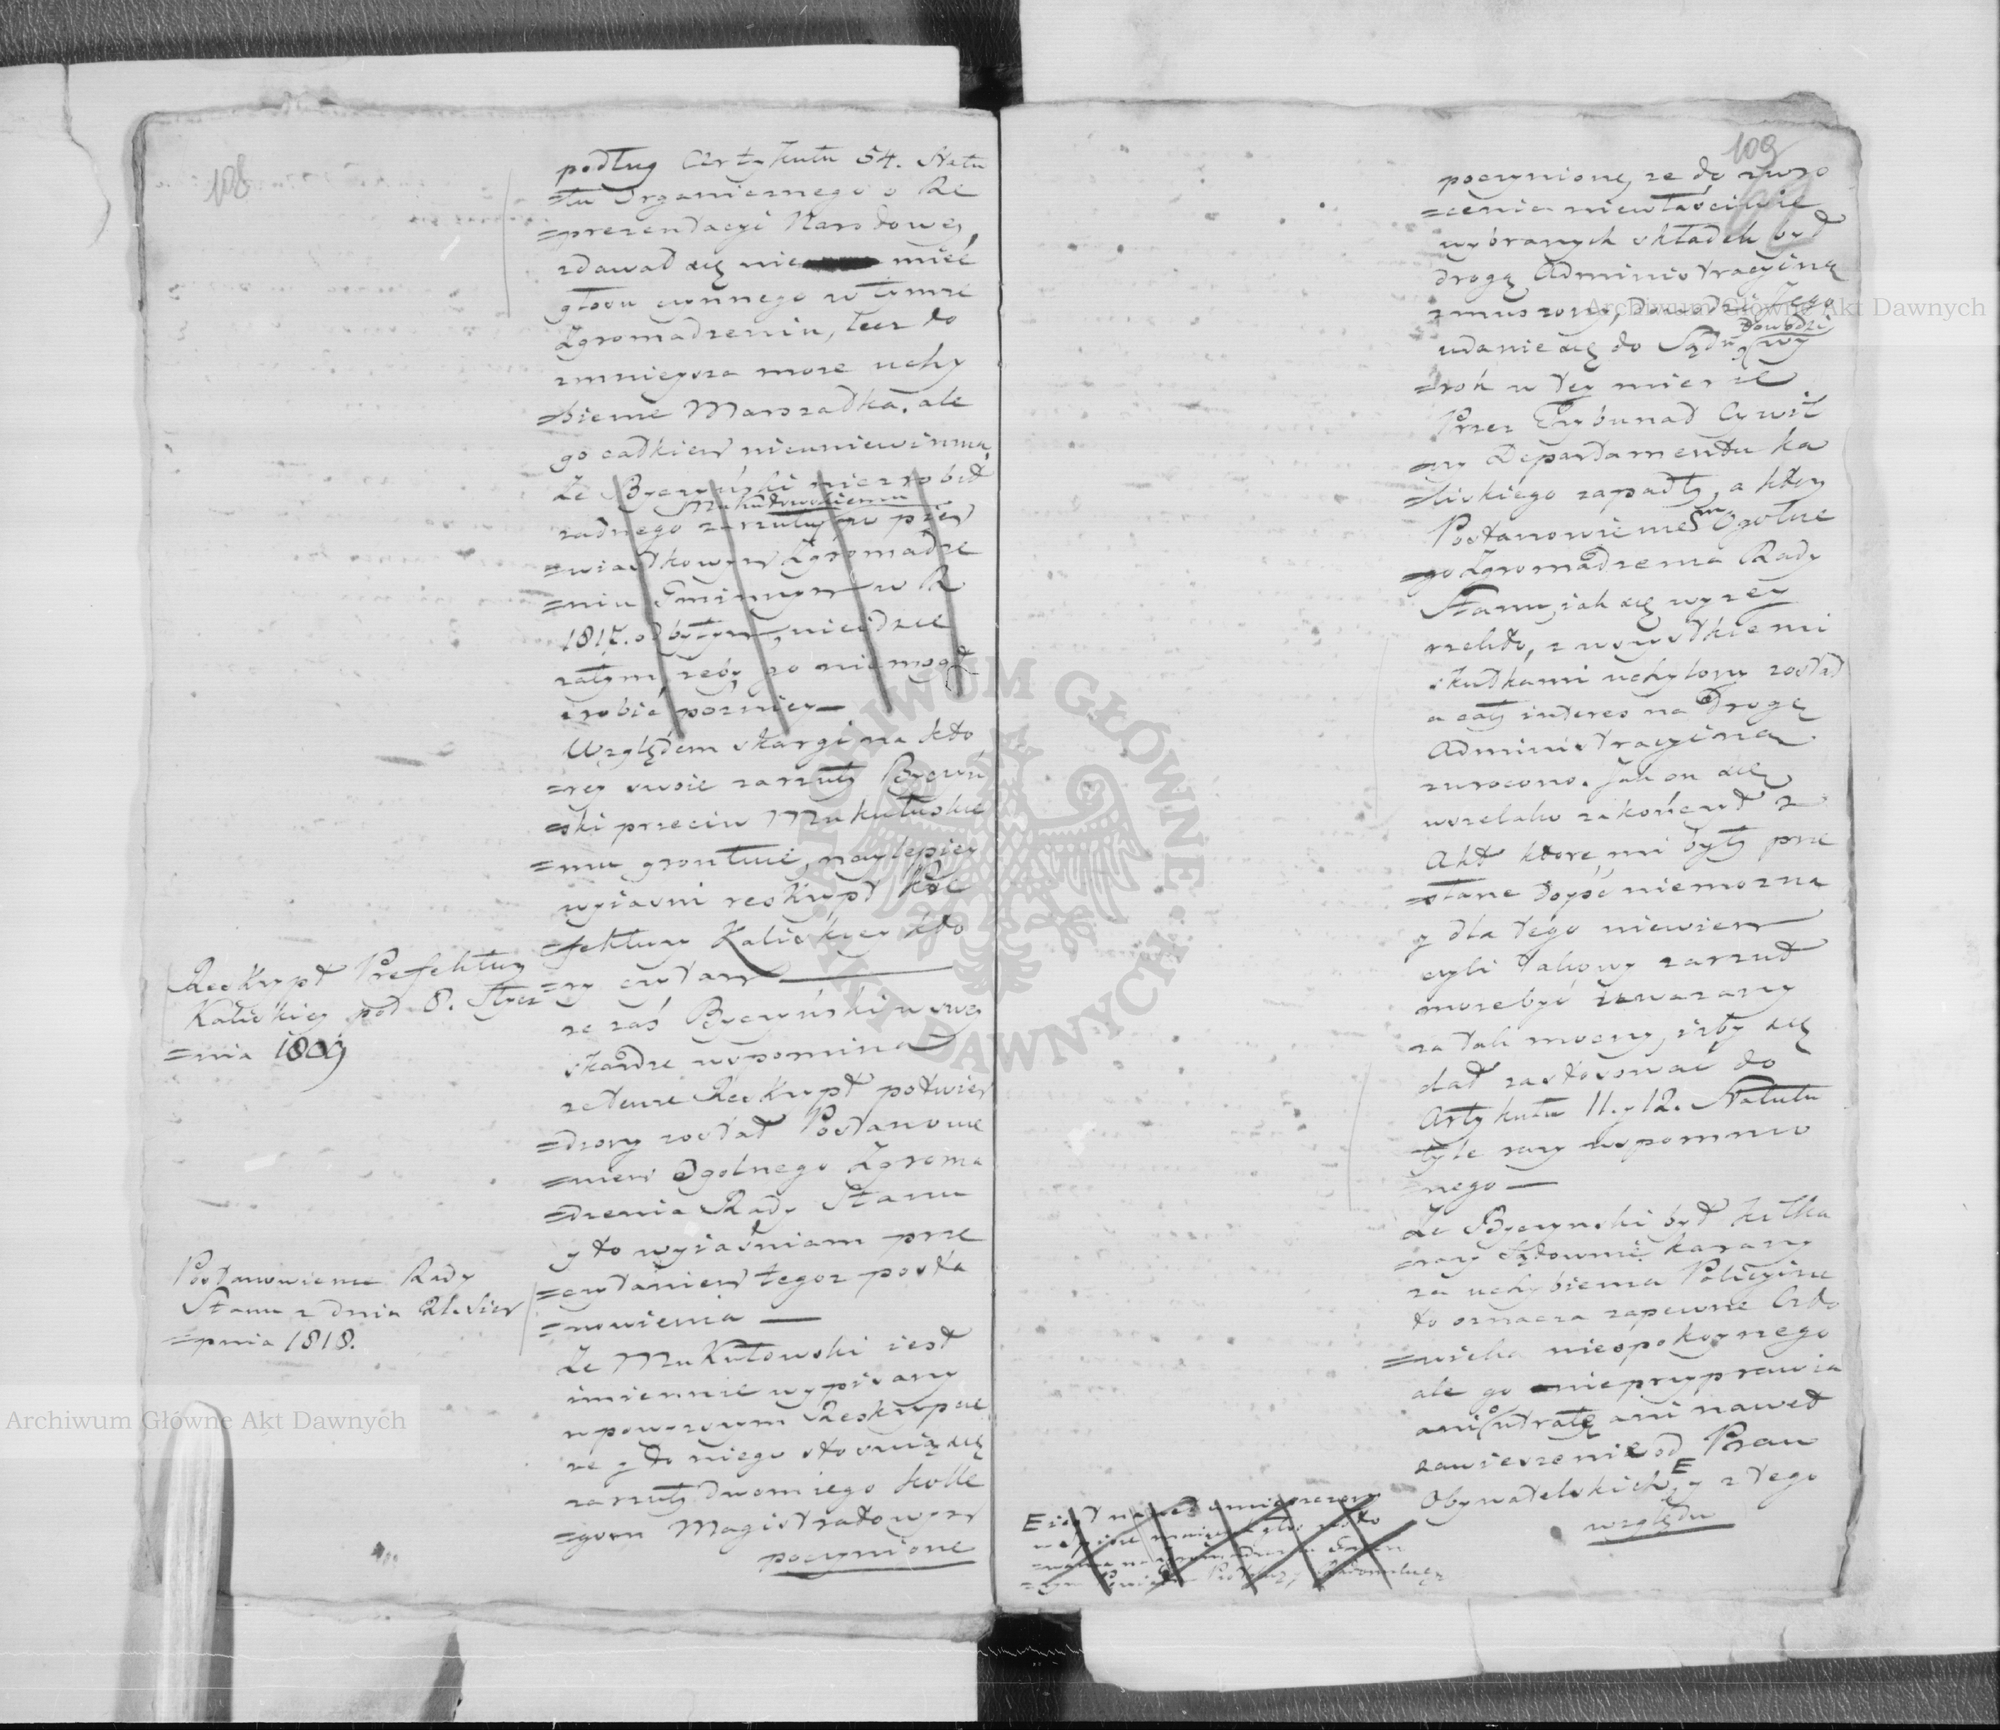 108
podług Artykułu 54. Statu
=tu Organicznego o Re
=prezentacyi Narodowey,
zdawał się nie mieć
głosu czynnego w tymże
Zgromadzeniu, lecz to
zmnieysza może uchy
=bienie Marszałka, ale
go całkiem nieuniewinnia,
Że Byczyński nie zrobił
Mukułowskiemu
żadnego zarzutu w pier
=wiastkowym Zgromadze
=niu Gminnym w R
1817. odbytym, nieidzie
zatym, żeby go niemógł
zrobić pózniey —
Względem skargi na któ
=rey swoie zarzuty Byczyń
=ski przeciw Mukułowskie
=mu gruntuie, naylepiey
wyiaśni reskrypt Pre
=fektury Kaliskiey któ
=ry czytam —
Reskrypt Prefektury
Kaliskiey pod 8. Stycz
=nia 1809
że zaś Byczyński w swey
skardze wspomina
że tenże Reskrypt potwier
=dzony został Postanowie
=niem Ogolnego Zgroma
=dzenia Rady Stanu
y to wyiaśniam prze
=czytaniem tegoż posta
=nowienia —
Postanowienie Rady
Stanu z dnia 21. Sier
=pnia 1818.
Że Mukułowski iest
imiennie wypisany
w powozszym Reskrypcie
że y do niego stosuią się
zarzuty dwom iego kolle
=gom Magistratowym
poczynione
109
poczynione, że do zwro
=cenia niewłaściwie
wybranych składek był
drogą Administracyiną
zmuszony, dowodzi Jego
udanie się do Sądu, wy
dowodzi
=rok w tey mierze
Przez Trybunał Cywil
=ny Departamentu Ka
=liskiego zapadły, a który
Postanowieniem Ogolne
=go Zgromadzenia Rady
Stanu, iak się wyżey
rzekło, z wszystkiemi
skutkami uchylony został
a cały interes na drogę
Administracyiną
zwrocono. Jak on się
wszelako zakończył z
Akt które mi były prze
=słane doyść niemożna
y dla tego niewiem
czyli takowy zarzut
może być uważany
za tak mocny, iżby się
dał zastosować do
Artykułu 11. y 12. Statutu
tyle razy wspomnio
=nego —
Że Byczynski był kilka
=razy Sądownie karany
za uchybienia Policyine
to oznacza zapewne Czło
=wieka niespokoynego
ale go nieprzyprawia
ani o utratę ani nawet
zawieszenie od Praw
Obywatelskich, E y z tego
względu
E iest nawet umieszczony